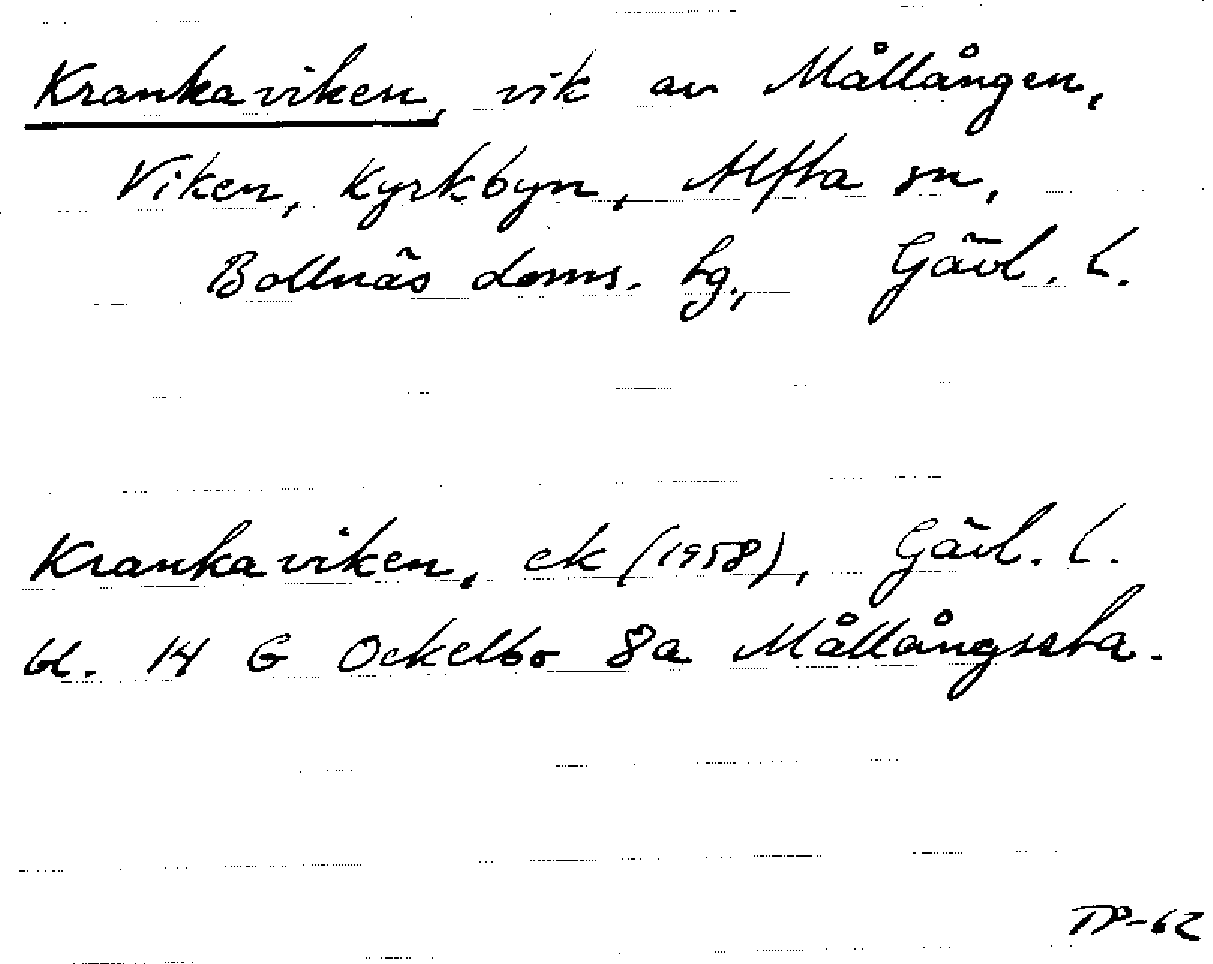 Krankaviken, vik av Mållången,
Viken, Kyrkbyn, Alfta sn,
Bollnäs doms. hg., Gävl. l.
Krankaviken, ek (1958), Gävl. l.
bl. 14 G Ockelbo 8a Mållångssta.
TP-62